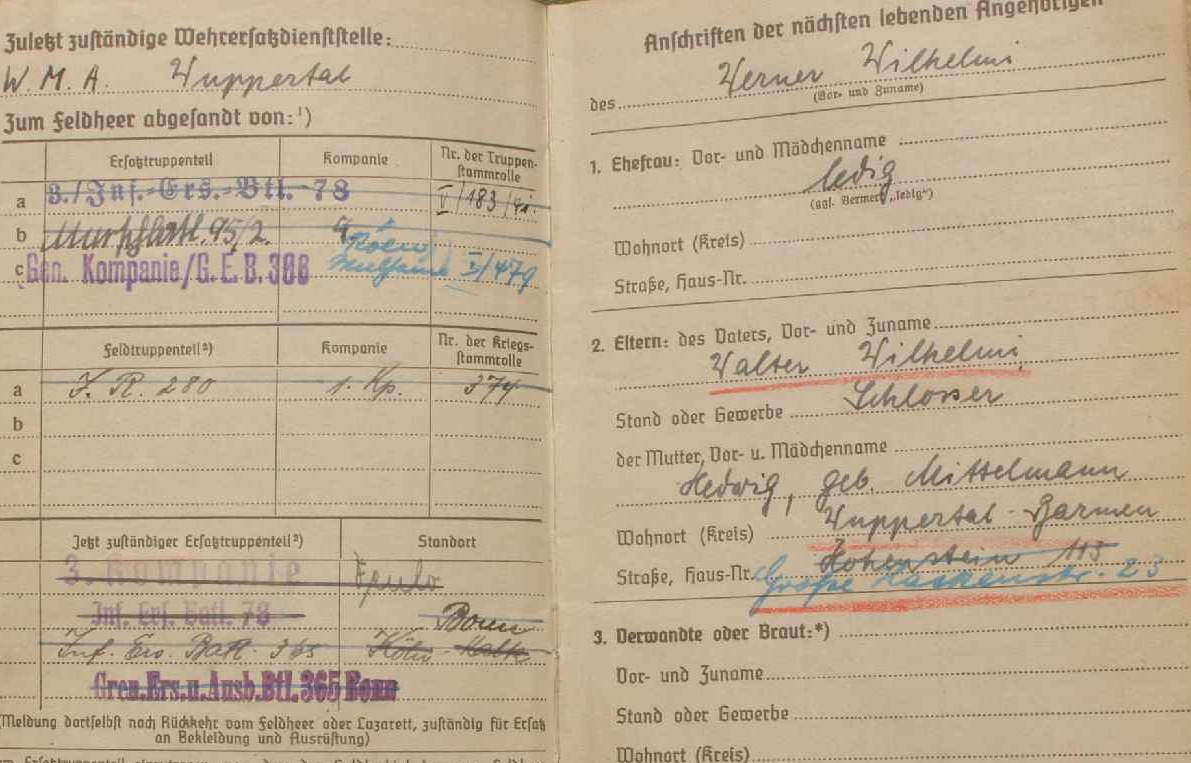 Zuletzt zuständige Wehrersatzdienststelle:
W. M. A. Wuppertal
Zum Feldheer abgesandt von:¹)
Ersatztruppenteil Kompanie Nr. der Truppen-
stammrolle
a 3./Inf.-Ers.-Btl.-78 V/183/41.
b 95/2.
c Gen. Kompanie/G.E.B. 388 I/479
Feldtruppenteil²) Kompanie Nr. der Kriegs-
stammrolle
a J. R. 280 1. Kp. 374
b
c
Jetzt zuständiger Ersatztruppenteil²) Standort
3. Kompanie
Inf. Ers. Batl. 78 Bonn
Inf. Ers. Batl. 365 Köln
Gren.Ers.u.Ausb.Btl.365 Bonn
(Meldung dortselbst nach Rückkehr vom Feldheer oder Lazarett, zuständig für Ersatz
an Bekleidung und Ausrüstung)
Anschriften der nächsten lebenden Angehörigen
des Werner Wilhelmi
(Vor- und Zuname)
1. Ehefrau: Vor- und Mädchenname
ledig
(ggf. Vermerk „ledig“)
Wohnort (Kreis)
Straße, Haus-Nr.
2. Eltern: des Vaters, Vor- und Zuname
Walter Wilhelmi
Stand oder Gewerbe Schlosser
der Mutter, Vor- u. Mädchenname
Hedwig, geb. Mittelmann
Wohnort (Kreis) Wuppertal-Barmen
Hohenstein 115
Straße, Haus-Nr. Große 23
3. Verwandte oder Braut:*)
Vor- und Zuname
Stand oder Gewerbe
Wohnort (Kreis)